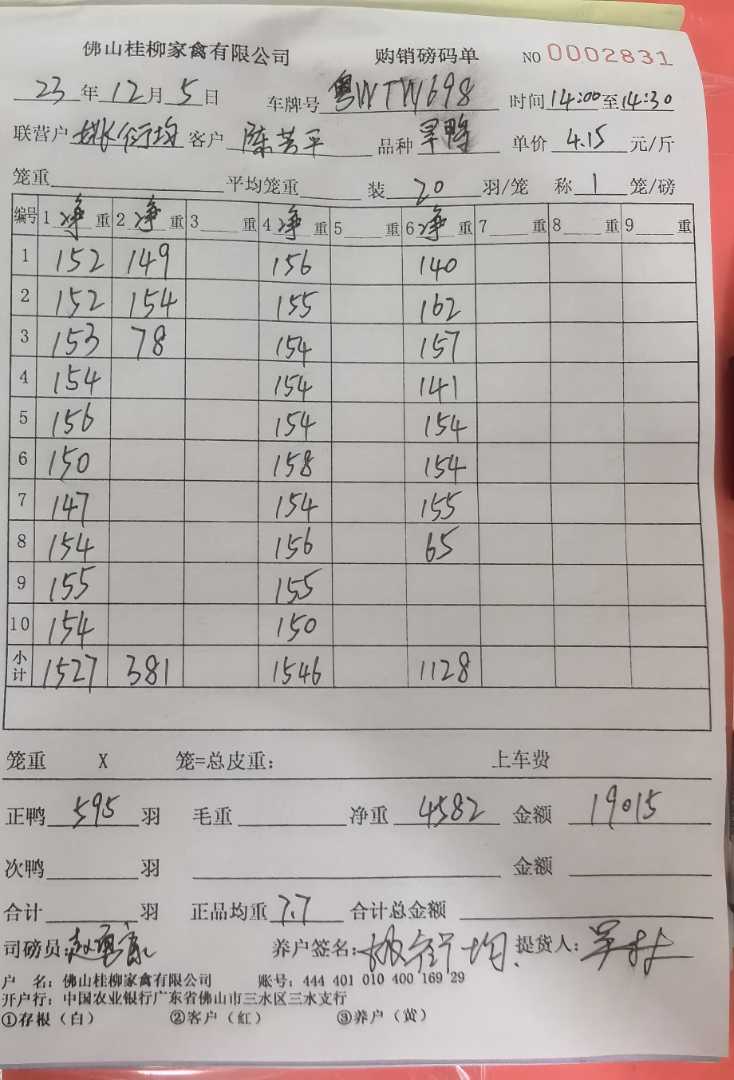 佛山桂柳家禽有限公司 购销磅码单 NO 0002831
23年12月5日 车牌号 粤WTW698 时间14:00至14:30
联营户 姚衍均 客户 陈芳平 品种 旱鸭 单价 4.15 元/斤
笼重 平均笼重 装 20 羽/笼 称 1 笼/磅
编号 1 净 重 2 净 重 3 重 4 净 重 5 重 6 净 重 7 重 8 重 9 重
1 152 149 156 140
2 152 154 155 162
3 153 78 154 157
4 154 154 141
5 156 154 154
6 150 158 154
7 147 154 155
8 154 156 65
9 155 155
10 154 150
小计 1527 381 1546 1128
笼重 X 笼=总皮重: 上车费
正鸭 595 羽 毛重 净重 4582 金额 19015
次鸭 羽 金额
合计 羽 正品均重 7.7 合计总金额
司磅员: 养户签名: 姚衍均 提货人:
户 名: 佛山桂柳家禽有限公司 账号: 444 401 010 400 169 29
开户行: 中国农业银行广东省佛山市三水区三水支行
①存根（白） ②客户（红） ③养户（黄）